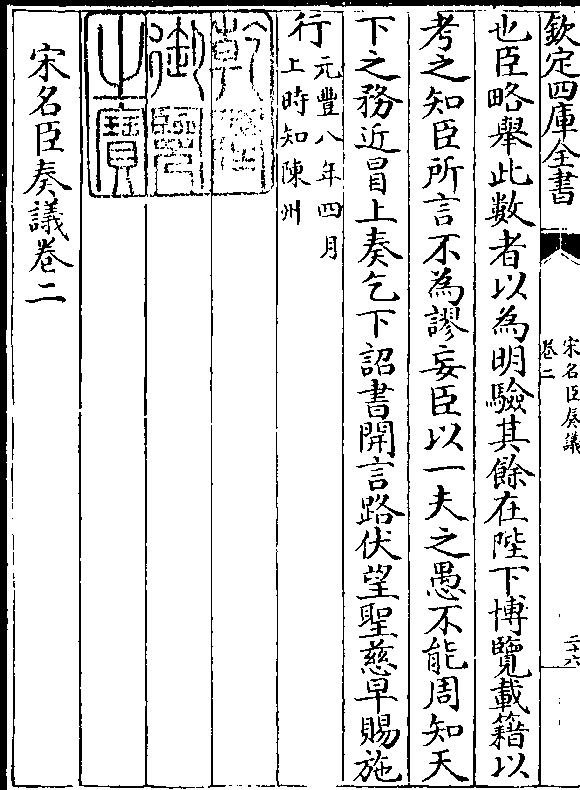 欽定四庫全書
宋名臣奏議
卷二
二十六
也臣略舉此數者以為明驗其餘在陛下博覽載籍以
考之知臣所言不為謬妄臣以一夫之愚不能周知天
下之務近冒上奏乞下詔書開言路伏望聖慈早賜施
行元豐八年四月
上時知陳州
乾隆
御覽
之寶
宋名臣奏議卷二